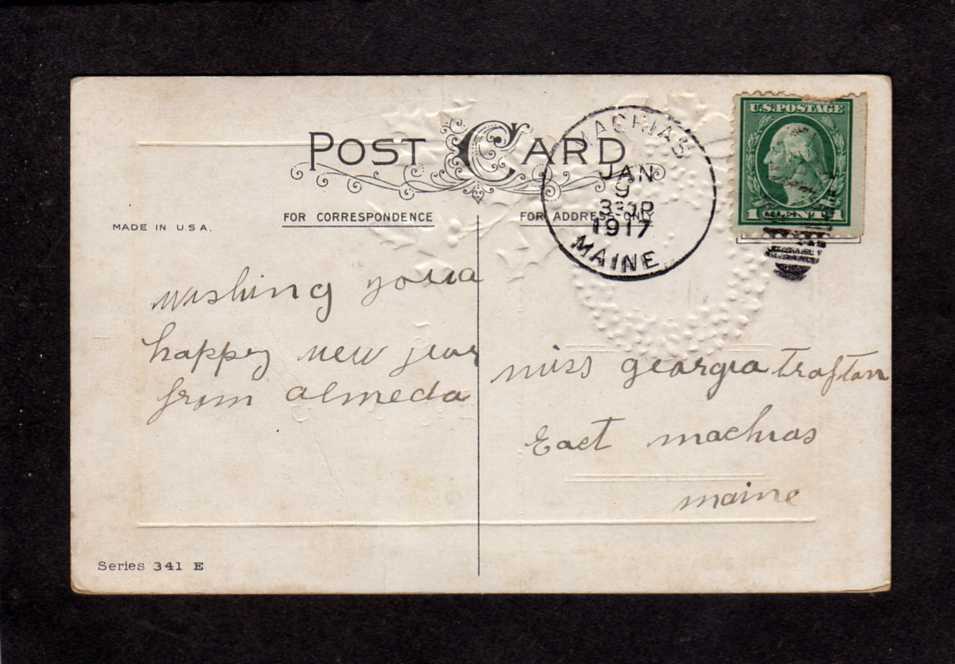 POST CARD
FOR CORRESPONDENCE
FOR ADDRESS ONLY
MADE IN U.S.A.
U.S. POSTAGE
1 CENT 1
MACHIAS
JAN
9
1917
MAINE
wishing you a
happy new year
from almeda
miss georgia Trafton
East machias
maine
Series 341 E